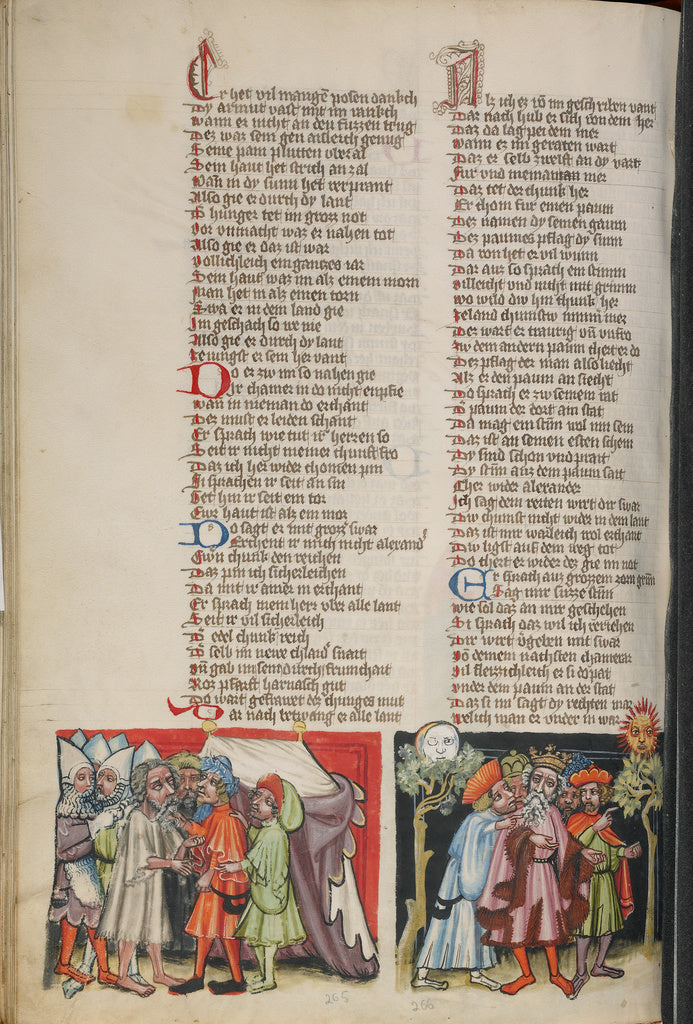 Er het vil mangē posen danckh
Dy armut vast mit im rankch
Wann er nicht an den fuzzen trug
Dez waz sein gen aislich genug
Seine pain plutten vberal
Sein haut het strich an zal
Wan in dy sunn het verprant
Also gie er durch dy lant
D hunger tet im groz not
Vor vnmacht waz er nahen tot
Also gie er daz ist war
Vollichleich ein gantzes iar
Sein haut waz im alz einem morn
Man het in alz einen torn
Swa er in dem land gie
Im geschach so we nie
Also gie er durch dy lant
Ze iungst er sein her vant
Do er zw im so nahen gie
Dir chamer in do nicht enphie
Wan in nieman do erchant
Der must er leiden schant
Er sprach wie tut ir herren so
Seit ir nicht meiner chunft fro
Daz ich her wider chomen pin
Si sprachen ir seit an sin
Get hin ir seit ein tor
Ewr haut ist alz ein mor
Do sagt er mit groz swar
Erchent ir mich nicht alexand
Ewrn chunk den reichen
Daz pin ich sicherleichen
Da mit ir amer in erchant
Er sprach mein herr vber alle lant
Seit ir vil sicherleich
D edel chunk reich
D selb im newe chlaid snait
Vn gab im sein durch frumchait
Ros phaift harnasch gut
Do wart gefrawet der chunges mut
Dar nach betwang er alle lant
Alz ich ez vō im geschriben vant
Dar nach hub er sich von dem her
Daz da lag pei dem mer
Wann ez im geraten wart
Daz er selb zwelft an dy vart
Fur vnd meinauan mer
Daz tet der chunk her
Er chom fur einen paum
Dez namen dy seinen gaum
Dez paumes pflag dy sunn
Da von het er vil wunn
Dar auz so sprach ein stimm
Villeicht vnd nicht mit grimm
Wo wild dw hin chunk her
Ze land chumstw nimm mer
Dez wart er traurig vn vnfro
Zw dem andern paum chert er do
Dez pflag der man also liecht
Alz er den paum an siecht
Do sprach er zw seinem rat
D paum der dort am stat
Da mag ein stim wol inn sein
Daz ist an seinen esten schein
Dy sind schon vnd prait
Dy stim auz dem paum sait
Cher wider alexander
Ich sag dem reiten wirt dir swar
Dw chumst nicht wider in dein lant
Daz ist mir warleich wol erchant
Dw ligst auf dem weg tot
Do chert er wider dez gie im not
Er sprach auz grozzem zorn grim
Sag mir suzze stim
Wie sol daz an mir geschehen
Si sprach daz wil ich veriehen
Dir wirt vgeben mit swar
Vō deinem nachsten chamerar
Vil fleizzichleich er si do pat
Vnder dem paum an der stat
Daz si im sagt dy rechten mar
Welich man er vnder in war
265
266